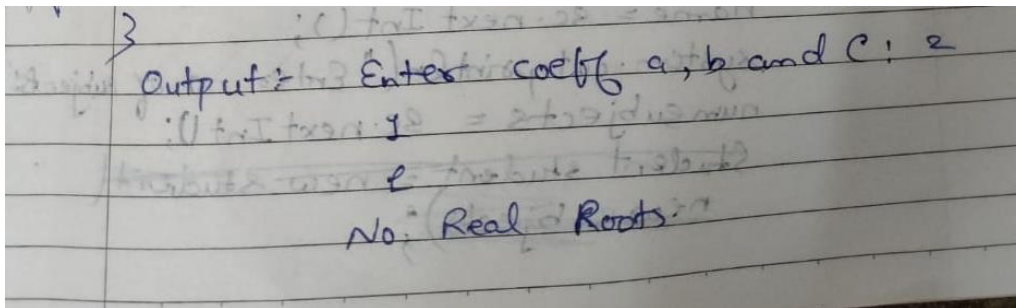 }
Output:- Enter coeff a, b and c: 2
1
No. Real Roots.